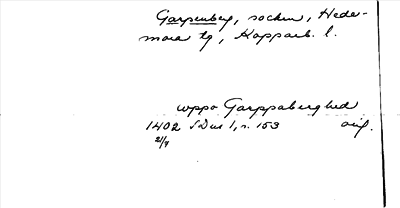 Garpenberg, socken, Hede-
mora tg, Kopparb. l.
uppa Garppaberghed
1402 SDns 1, s. 153 orig.
21/7